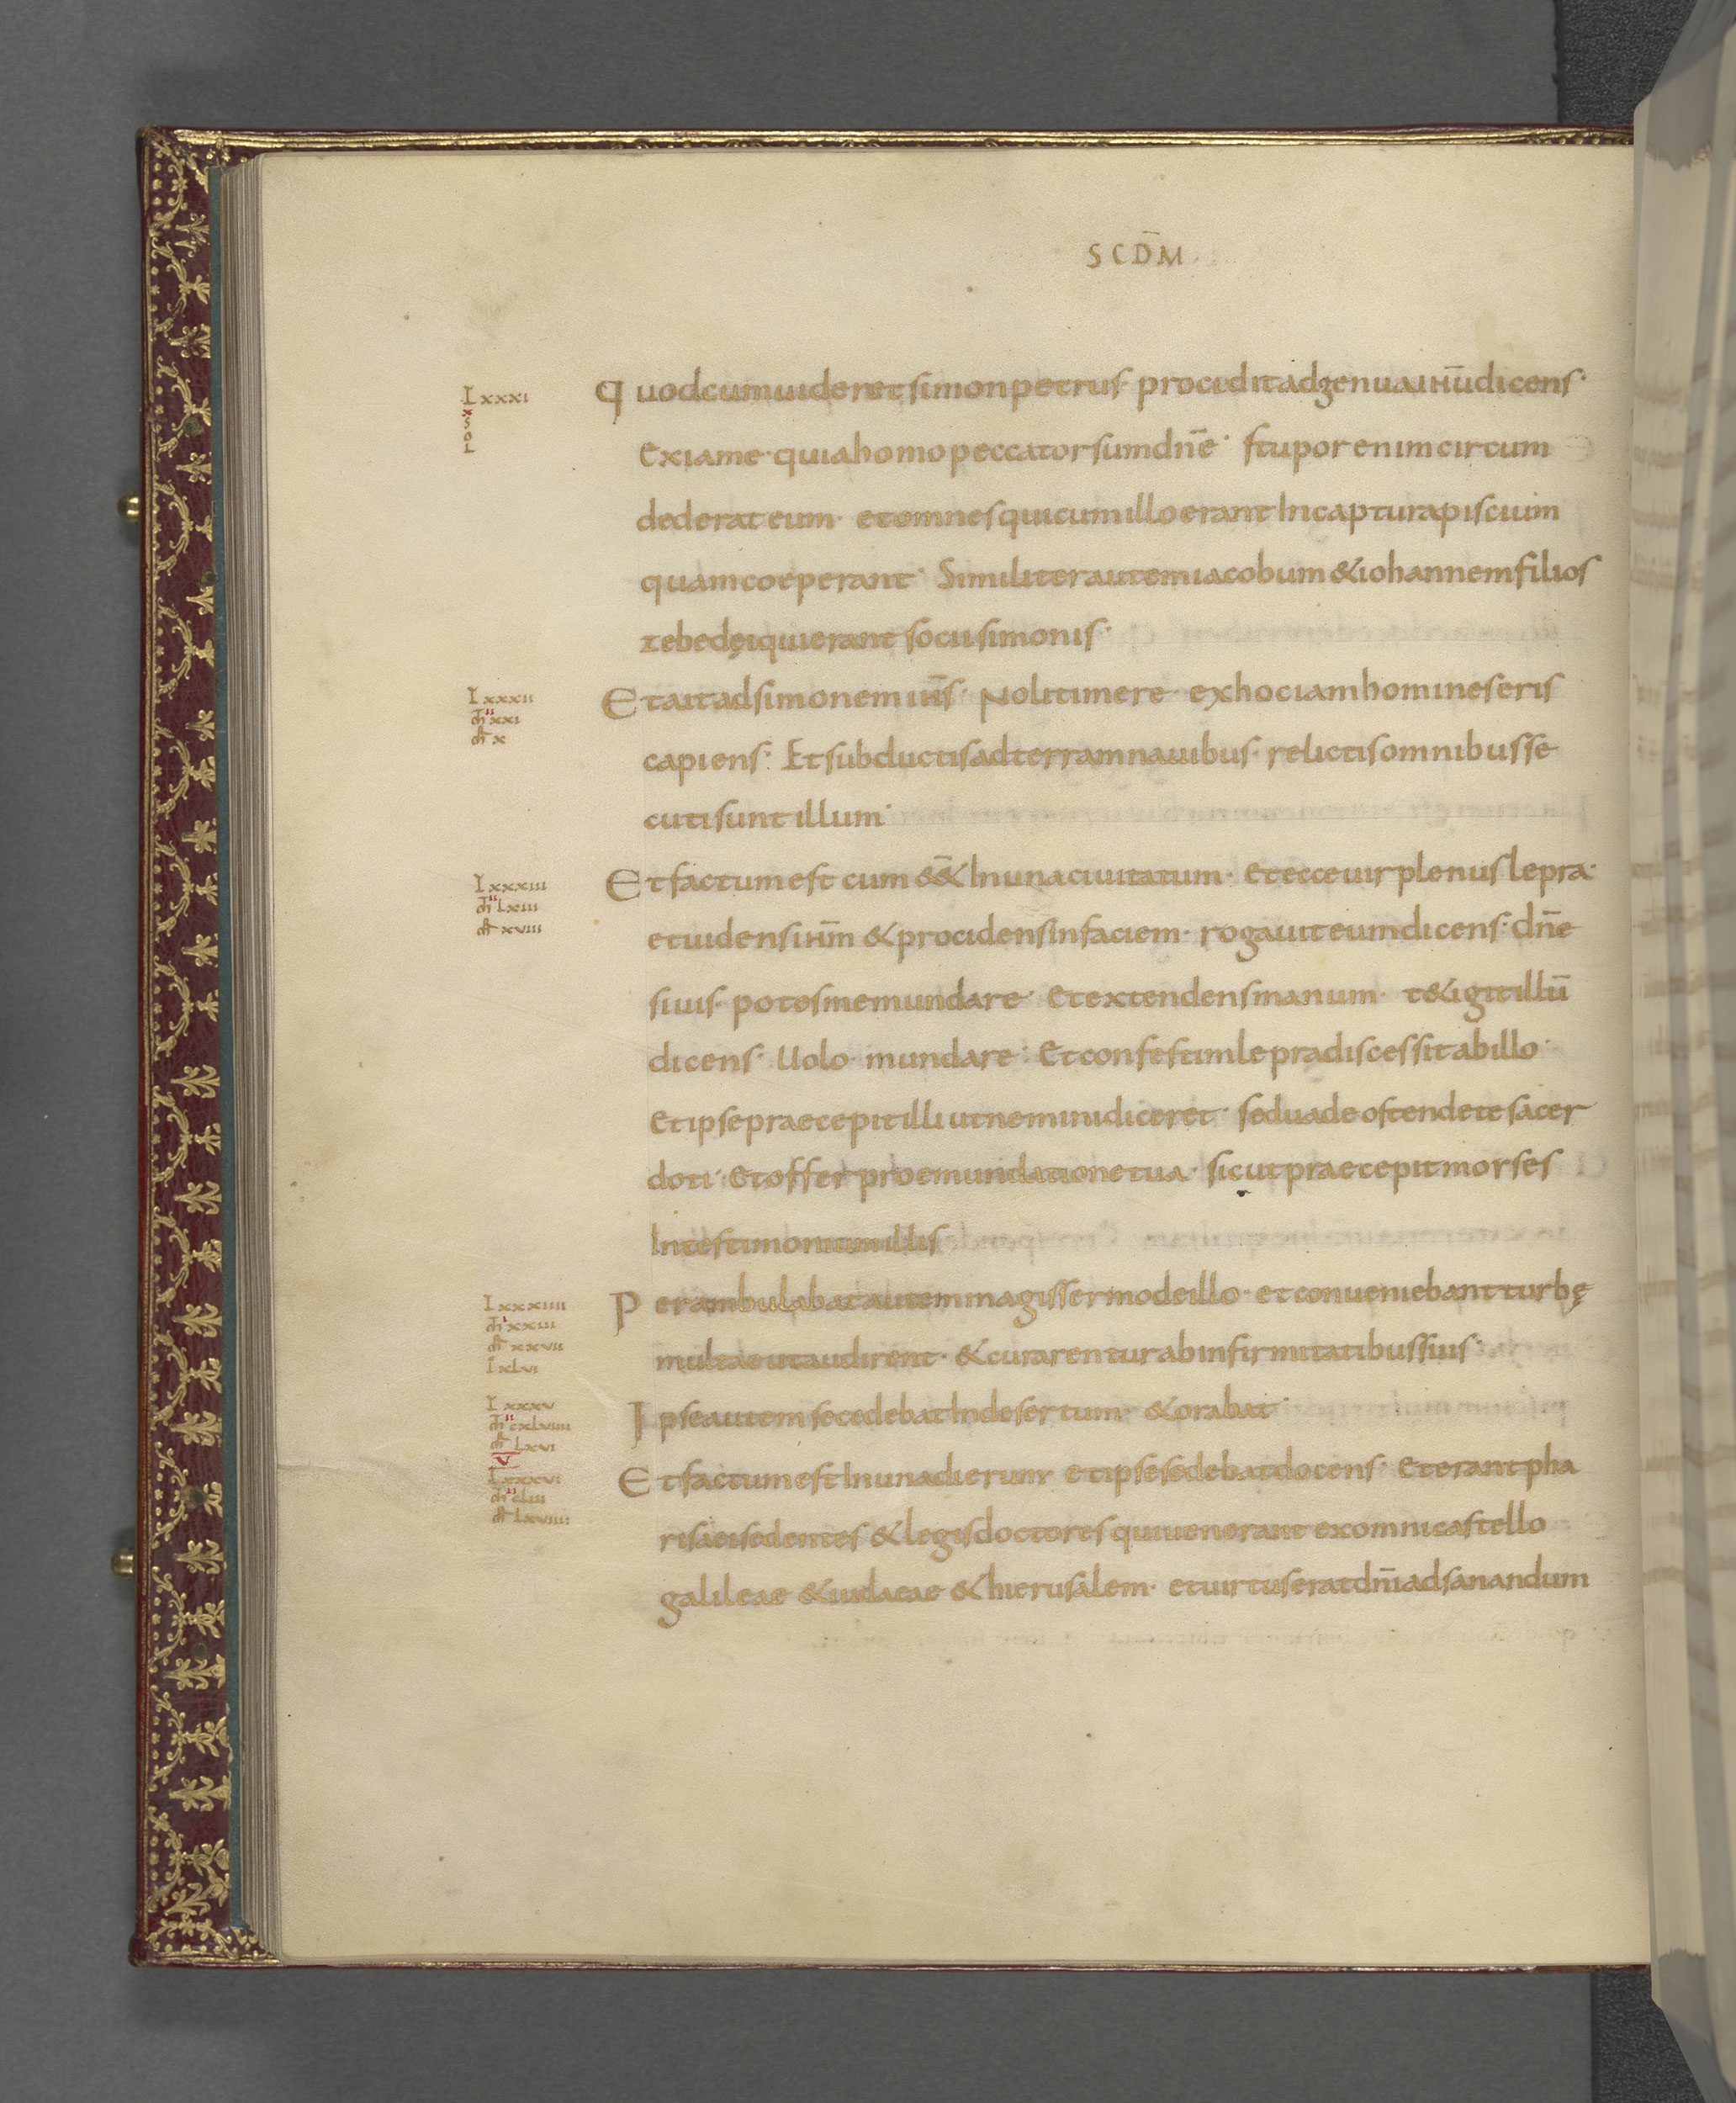 SCD̄M
lxxxi Quod cum uideret simon petrus· procidit ad genua ihū dicens·
x
SOL
Exi a me· quia homo peccator sum dnē· stupor enim circum
dederat eum· et omnes qui cum illo erant In captura piscium
quam coeperant· Similiter autem iacobum & iohannem filios
zebedęi qui erant socii simonis·
lxxxii Et ait ad simonem ihs̄· Noli timere· ex hoc iam homines eris
xxi
x
capiens· Et subductis ad terram nauibus· relictis omnibus se
cuti sunt illum·
lxxxiii Et factum est cum ēēt In una ciuitatum· Et ecce uir plenus lepra·
lxiii
xviii
et uidens ihm̄ & procidens In faciem· rogauit eum dicens· dnē
si uis· potes me mundare· Et extendens manum· t&igit illū
dicens· Uolo· mundare· Et confestim lepra discessit ab illo·
Et ipse praecepit illi ut nemini diceret· sed uade ostende te sacer
doti· Et offer pro emundatione tua· sicut praecepit morses
In testimonium illis
lxxxiiii Perambulabat autem magis sermo de illo· et conueniebant turbę
xxiii
xxvii
xlvi
multae ut audirent· & curarentur ab infirmitatibus suis·
lxxxv Ipse autem secedebat In desertum· & orabat·
cxlviiii
lxvi
v
lxxxvi Et factum est In una dierum· et ipse sedebat docens· Et erant pha
clii
lxviiii
risaei sedentes & legis doctores qui uenerant ex omni castello
galileae & iudaeae & hierusalem· et uirtus erat dnī ad sanandum